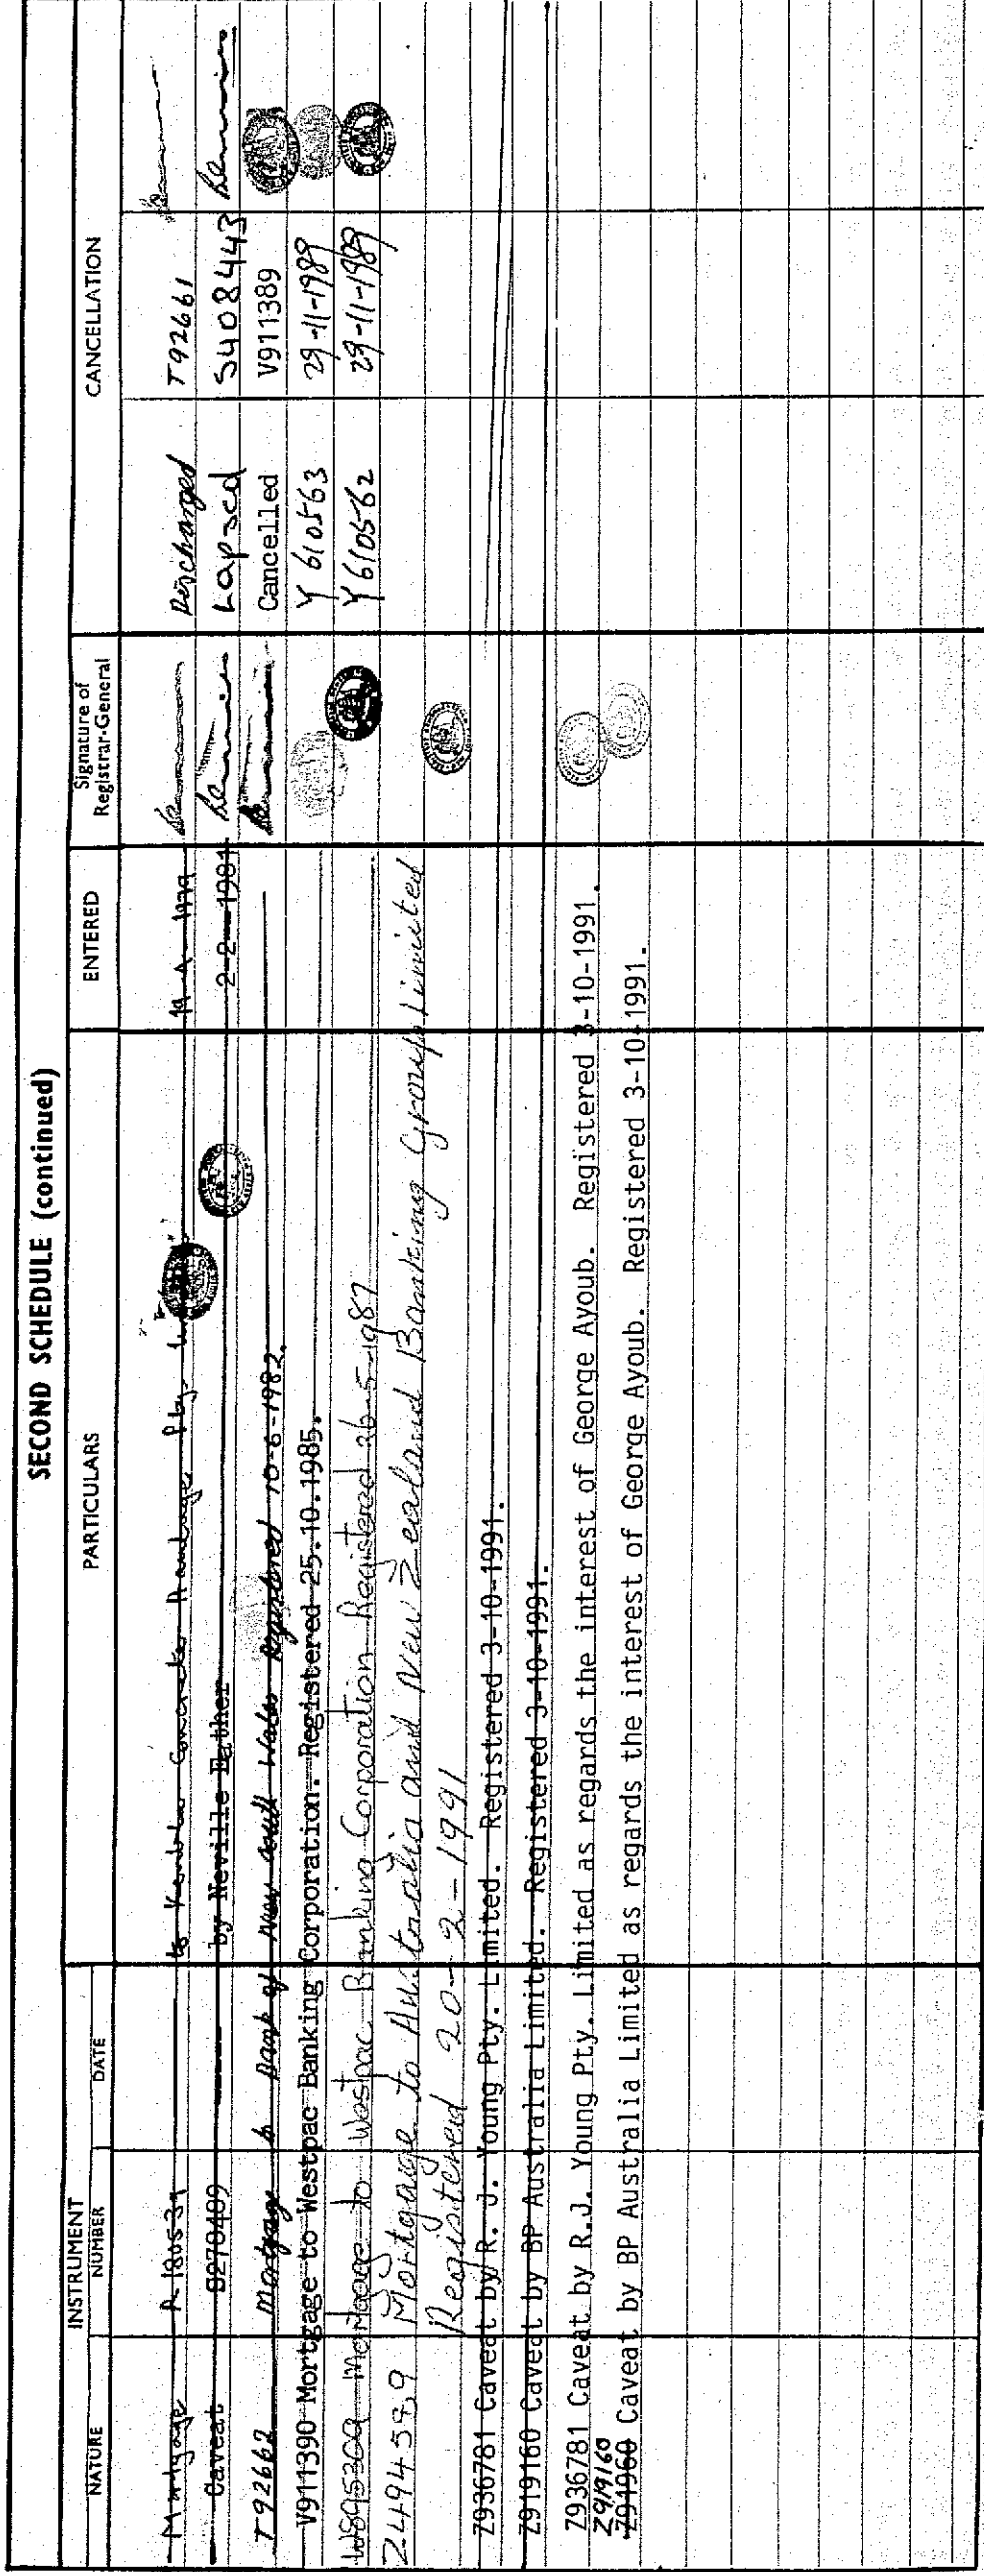 SECOND SCHEDULE (continued)
INSTRUMENT PARTICULARS ENTERED Signature of Registrar-General CANCELLATION
NATURE NUMBER DATE
Mortgage R180539 to Concrete Pty. 1979 Discharged T92661
Caveat S270409 by Neville 2-2-1981 Lapsed S408443
T92662 Mortgage to Bank of New South Wales Registered 10-6-1982. Cancelled V911389
V911390 Mortgage to Westpac Banking Corporation. Registered 25.10.1985. Y610563 29-11-1989
W895369 Mortgage to Westpac Banking Corporation Registered 26-5-1987 Y610562 29-11-1989
Z494589 Mortgage to Australia and New Zealand Banking Group Limited
Registered 20-2-1991
Z936781 Caveat by R. J. Young Pty. Limited. Registered 3-10-1991.
Z919160 Caveat by BP Australia Limited. Registered 3-10-1991.
Z936781 Caveat by R.J. Young Pty. Limited as regards the interest of George Ayoub. Registered 3-10-1991.
Z919160
Z91960 Caveat by BP Australia Limited as regards the interest of George Ayoub. Registered 3-10-1991.